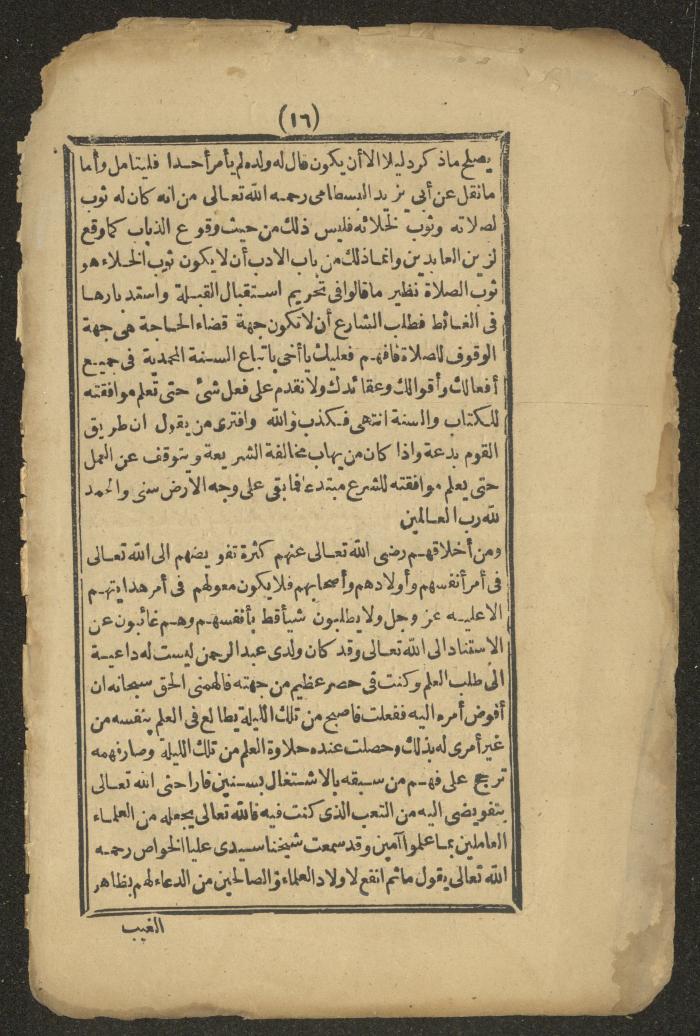 (١٦)
يصلح ماذكر دليلا الا أن يكون قال له ولده لم يأمر أحدا فليتامل وأما
مانقل عن أبى يزيد البسطامى رحمه الله تعالى من انه كان له ثوب
لصلاته وثوب لخلائه فليس ذلك من حيث وقوع الذباب كما وقع
لزين العابدين وانما ذلك من باب الادب أن لا يكون ثوب الخلاء هو
ثوب الصلاة نظير ما قالوا فى تحريم استقبال القبلة واستدبارها
فى الغائط فطلب الشارع أن لا تكون جهة قضاء الحاجة هى جهة
الوقوف للصلاة فافهم فعليك يا أخى باتباع السنة المحمدية فى جميع
أفعالك وأقوالك وعقائدك ولا تقدم على فعل شئ حتى تعلم موافقته
للكتاب والسنة انتهى فكذب والله وافترى من يقول ان طريق
القوم بدعة واذا كان من يهاب مخالفة الشريعة ويتوقف عن العمل
حتى يعلم موافقته للشرع مبتدعا فما بقى على وجه الارض سنى والحمد
لله رب العالمين
ومن أخلاقهم رضى الله تعالى عنهم كثرة تفويضهم الى الله تعالى
فى أمر أنفسهم وأولادهم وأصحابهم فلا يكون معولهم فى أمر هدايتهم
الا عليه عز وجل ولا يطلبون شيأ قط بأنفسهم وهم غائبون عن
الاستناد الى الله تعالى وقد كان ولدى عبد الرحمن ليست له داعية
الى طلب العلم وكنت فى حصر عظيم من جهته فالهمنى الحق سبحانه ان
أفوض أمره اليه ففعلت فاصبح من تلك الليلة يطالع فى العلم بنفسه من
غير أمرى له بذلك وحصلت عنده حلاوة العلم من تلك الليلة وصار فهمه
ترجح على فهم من سبقه بالاشتغال بسنين فاراحنى الله تعالى
بتفويضى اليه من التعب الذى كنت فيه فالله تعالى يجعله من العلماء
العاملين بما علموا آمين وقد سمعت شيخنا سيدى عليا الخواص رحمه
الله تعالى يقول ما ثم انفع لاولاد العلماء والصالحين من الدعاء لهم بظاهر
الغيب